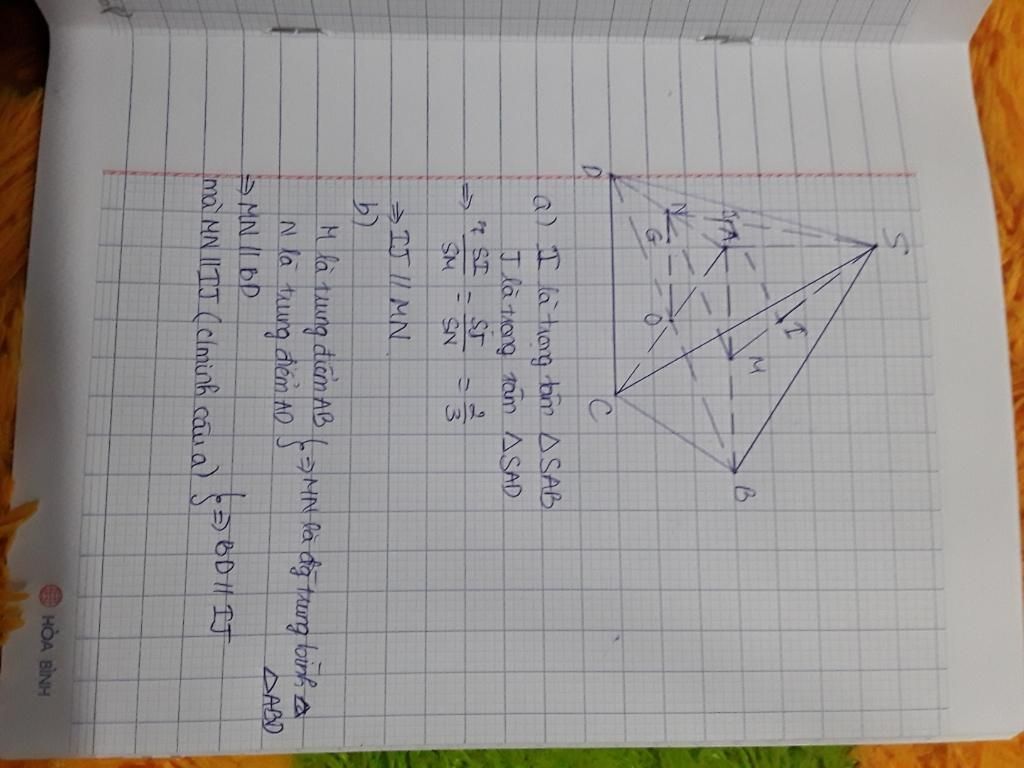 S
I
A
M
B
N
G
O
D
C
a) I là trọng tâm △SAB
J là trọng tâm △SAD
⇒ SI/SM = SJ/SN = 2/3
⇒ IJ // MN.
b)
M là trung điểm AB
N là trung điểm AD } ⇒ MN là đg trung bình △
△ABD
⇒ MN // BD
mà MN // IJ (c/minh câu a) } ⇒ BD // IJ
HÒA BÌNH